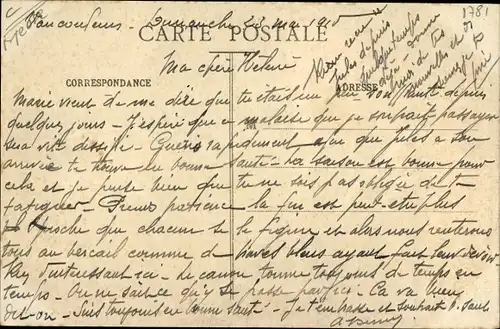 Vaucouleurs - Dimanche 23 mai 1915
CARTE POSTALE
1781
Ma chère
CORRESPONDANCE
ADRESSE
Marie vient de me dire que tu étais un peu souffrante depuis
quelques jours - J'espère que ce malaise que je souhaite passager
sera vite dissipé - Guéris rapidement afin que Jules à son
arrivée te trouve en bonne santé - La saison est bonne pour
cela et je pense bien que tu ne sois pas obligée de te
fatiguer - Prends patience la fin est peut-être plus
proche que chacun se le figure et alors nous rentrerons
tous au bercail comme de braves bleus ayant fait leur devoir
Rien d'intéressant ici - Le canon tonne toujours de temps en
temps - On ne sait ce qu'il se passe par ici - Ca va bien
dit-on - Suis toujours en bonne santé - Je t'embrasse et souhaite b. santé